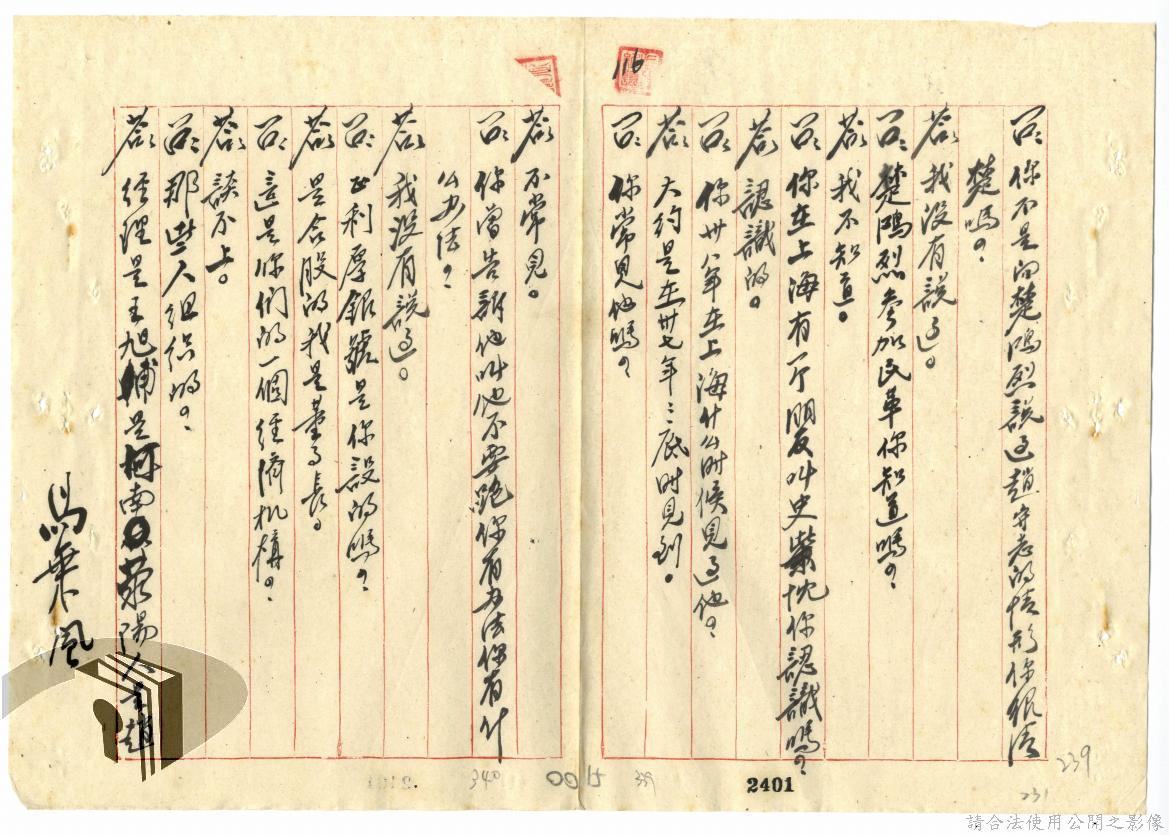 116
問：你不是向楚鴻烈說过趙守志的情形你很清
楚嗎？
答：我没有說过。
問：楚鴻烈參加民革你知道嗎？
答：我不知道。
問：你在上海有一个朋友叫史紫忱你認識嗎？
答：認識的。
問：你卅八年在上海什么時候見过他？
答：大約是在卅七年年底時見到。
問：你常見他嗎？
答：不常見。
問：你曾告訴他叫他不要跑你有办法你有什
么办法？
答：我没有說过。
問：正利厚銀號是你設的嗎？
答：是合股的我是董事長。
問：這是你們的一個经濟机構？
答：談不上。
問：那些人组织的？
答：经理是王旭輔是河南荥陽人李趙
馬乘風
239
231
2401
339
0015
340
請合法使用公開之影像